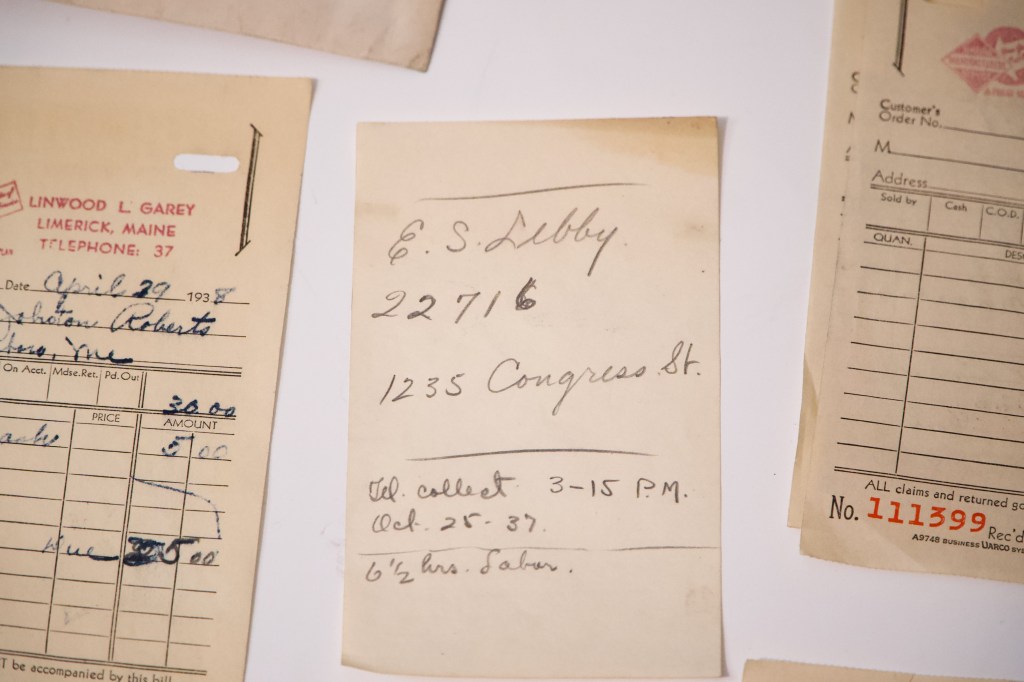 LINWOOD L. GAREY
LIMERICK, MAINE
TELEPHONE: 37
Date April 29 1938
Johston Roberts
boro, Me
On Acct. Mdse. Ret. Pd. Out
30 00
PRICE AMOUNT
5 00
Due 25 00
T be accompanied by this bill
E. S. Libby.
22716
1235 Congress St.
Tel. collect 3-15 P.M.
Oct. 25-37.
6 1/2 hrs. Labor.
Customer's
Order No.
M
Address
Sold by Cash C.O.D.
QUAN. DES
ALL claims and returned go
No. 111399 Rec'd
A9748 BUSINESS UARCO SYS